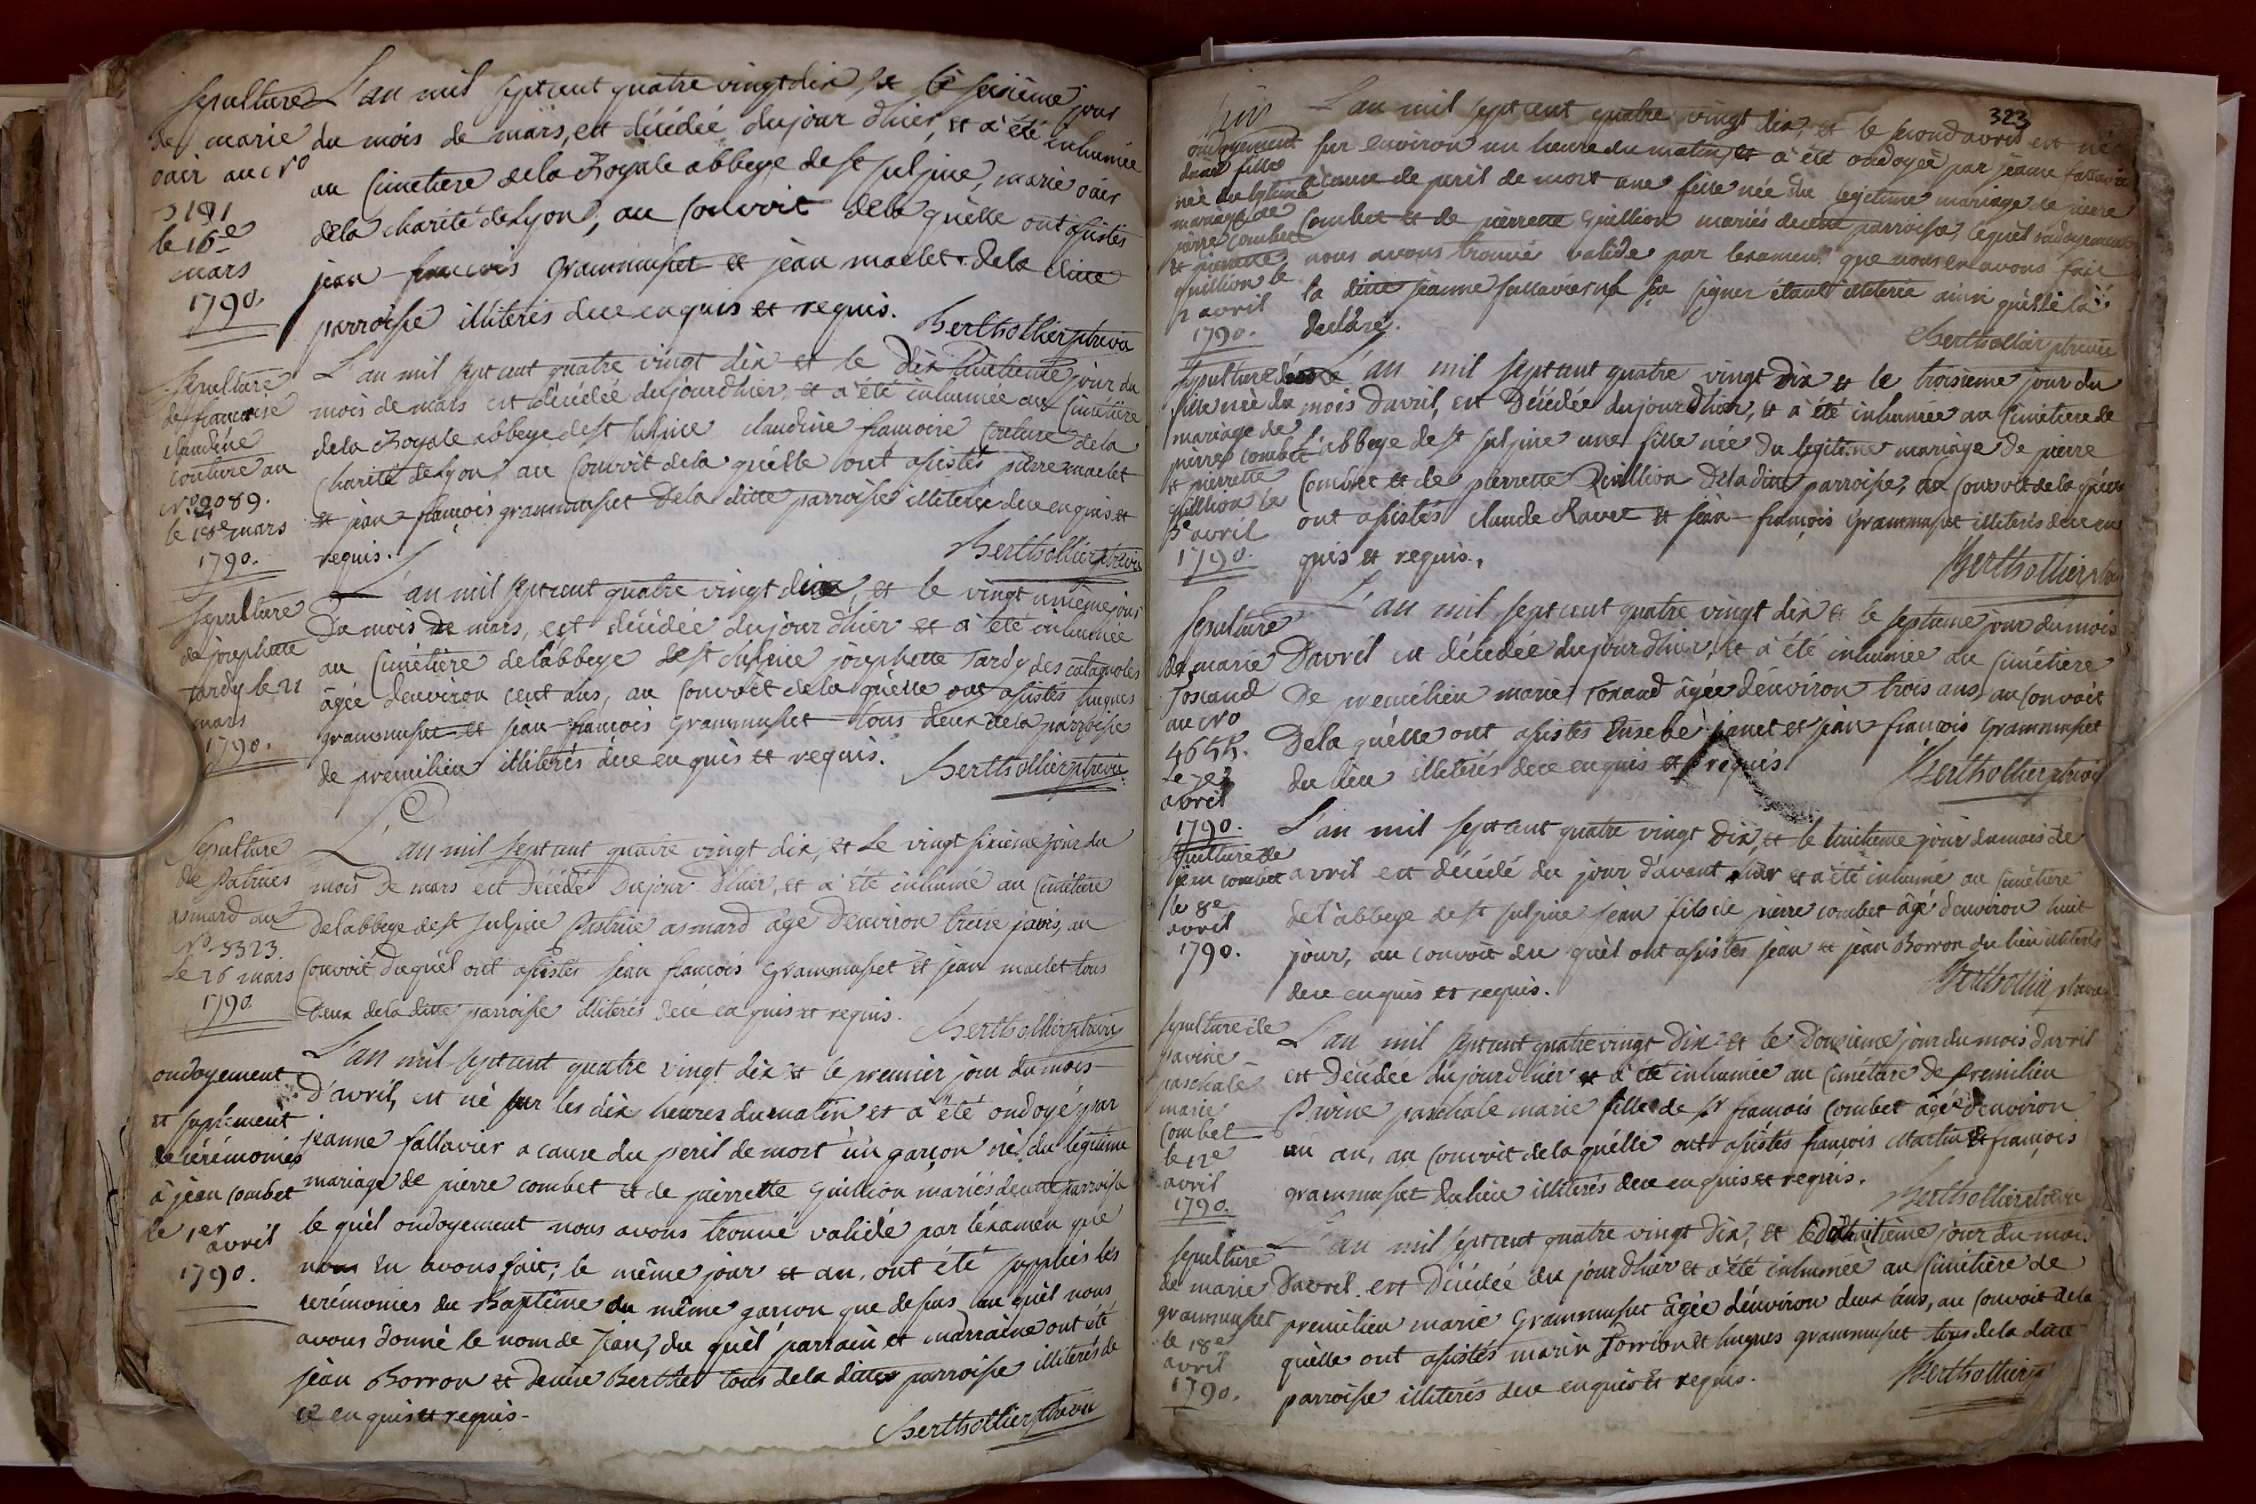 Sepulture
de marie
oair au N°
le 16e
mars
1790.
L'an mil sept cent quatre vingt dix, et le seisième jour
du mois de mars, est décédée dujour d'hier, et a été inhumée
au Cimetiere de la Royale abbeye de st sulpice, marie oair
dela charité de Lyon, au Convoit dela quèlle ont asistés
jean françois grammuset et jean maclet dela ditte
parroisse illiterés de ce enquis et requis.
Berthollier
Sepulture
de francoise
claudine
couture au
N° 9089.
le 18e mars
1790.
L'an mil sept cent quatre vingt dix et le dix huitieme jour du
mois de mars est décédée dujourd'hier, et a été inhumée au Cimetière
dela Royale abbeye de st sulpice claudine francoise Couture dela
Charité de Lyon au Convoit dela quèlle ont asistés pierre maclet
et jean françois grammuset dela ditte parroisse illiterés de ce enquis et
requis.
Berthollier
Sepulture
de josephette
tardy le 21
mars
1790.
L'an mil sept cent quatre vingt dix, et le vingt unième jour
Du mois de mars, est décédée dujour d'hier et a été inhumée
au Cimetière de l'abbeye de st sulpice josephette Tardy des catagnoles
âgée d'environ cent ans, au Convoit dela quèlle ont asistés hugues
grammuset et jean françois Grammuset tous deux dela parroisse
de premilieu illiterés de ce enquis et requis.
Berthollier
Sepulture
de Patrice
asmard au
N° 3323.
Le 26 mars
1790
L'an mil sept cent quatre vingt dix, et le vingt sixième jour du
mois de mars est décédé Dujour d'hier, et a été inhumé au Cimétiere
de l'abbeye de st sulpice Patrice asmard agé d'environ treize jours, au
Convoit duquèl ont asistés jean francois Grammuset et jean maclet tous
Deux dela ditte parroisse illiterés de ce enquis et requis.
Berthollier
ondoyement
et suplement
de cérémonies
à jean combet
le 1er
avril
1790.
L'an mil sept cent quatre vingt dix et le premier jour du mois
D'avril, est né sur les dix heures du matin et a été ondoyé par
jeanne fallavier a cause du peril de mort un garçon né du légitime
mariage de pierre combet et de pierrette quillion mariés de cette parroisse
le quèl ondoyement nous avons trouvé validé par l'éxamen que
nous en avons fait; le même jour et an, ont été supplées les
cérémonies du Baptême du même garçon que desus au quèl nous
avons donné le nom de jean, du quèl parrain et marraine ont été
jean Borron et denise Berthet tous dela ditte parroisse illiterés de
ce enquis et requis.
Berthollier
323
ondoyement
d'une fille
née du légitime
mariage de
pierre Combet
et pierrette
quillion le
2 avril
1790.
L'an mil sept cent quatre vingt dix, et le second avril est née
sur environ un heure du matin, et a été ondoyée par jeanne fallavier
a cause de peril de mort une fille née du legitime mariage de pierre
Combet et de pierrette quillion mariés de cette parroisse, lequèl ondoyement
nous avons trouvé valide par lexamen que nous en avons fait
la ditte jeanne fallavier n'a su signer étant illiterée ainsi qu'èlle l'a
declaré.
Berthollier
Sepulture d'une
fille née du
mariage de
pierre combet
et pierrette
quillion le
3e avril
1790.
L'an mil sept cent quatre vingt dix et le troisieme jour du
mois d'avril, est Décédée dujour d'hier, et a été inhumée au Cimétiere de
l'abbeye de st sulpice une fille née du legitime mariage de pierre
Combet et de pierrette Quillion Dela ditte parroisse, au Convoit dela quèlle
ont asistés claude Ravet et jean françois Grammuset illiterés de ce en
quis et requis.
Berthollier
Sepulture
de marie
Tossand
au N°
4655.
Le 7e
avril
1790.
L'an mil sept cent quatre vingt dix et le septieme jour du mois
D'avril est décédée dujour d'hier, et a été inhumée au Cimétiere
De premilieu marie Tossand âgée d'environ trois ans, au Convoit
Dela quèlle ont asistés Eusebe janet et jean francois Grammuset
du lieu illiterés de ce enquis et requis.
Berthollier
Sepulture de
jean combet
le 8e
avril
1790.
L'an mil sept cent quatre vingt Dix, et le huitieme jour du mois de
avril est décédé du jour d'avant hier et a été inhumé au Cimétiere
de l'abbeye de st sulpice jean fils de pierre combet âgé d'environ huit
jour, au Convoit du quèl ont asistés jean et jean Borron du lieu illiterés
de ce enquis et requis.
Berthollier
Sepulture de
pavine
paschale
marie
Combet
le 12e
avril
1790.
L'an mil sept cent quatre vingt Dix et le Douzieme jour du mois d'avril
est Décédée dujourd'hier et a été inhumée au Cimétiere De premilieu
Pavine paschale marie fille de sr francois Combet âgée d'environ
un an, au Convoit dela quèlle ont asistés françois Martin et françois
grammuset du lieu illiterés de ce enquis et requis.
Berthollier
Sepulture
de marie
grammuset
le 18e
avril
1790.
L'an mil sept cent quatre vingt Dix, et le dixhuitieme jour du mois
D'avril est Décédée du jour d'hier et a été inhumée au Cimétière de
premilieu marie Grammuset âgée d'environ deux ans, au Convoit dela
quèlle ont asistés marin Torrion et hugues grammuset tous dela ditte
parroisse illiterés de ce enquis et requis.
Berthollier